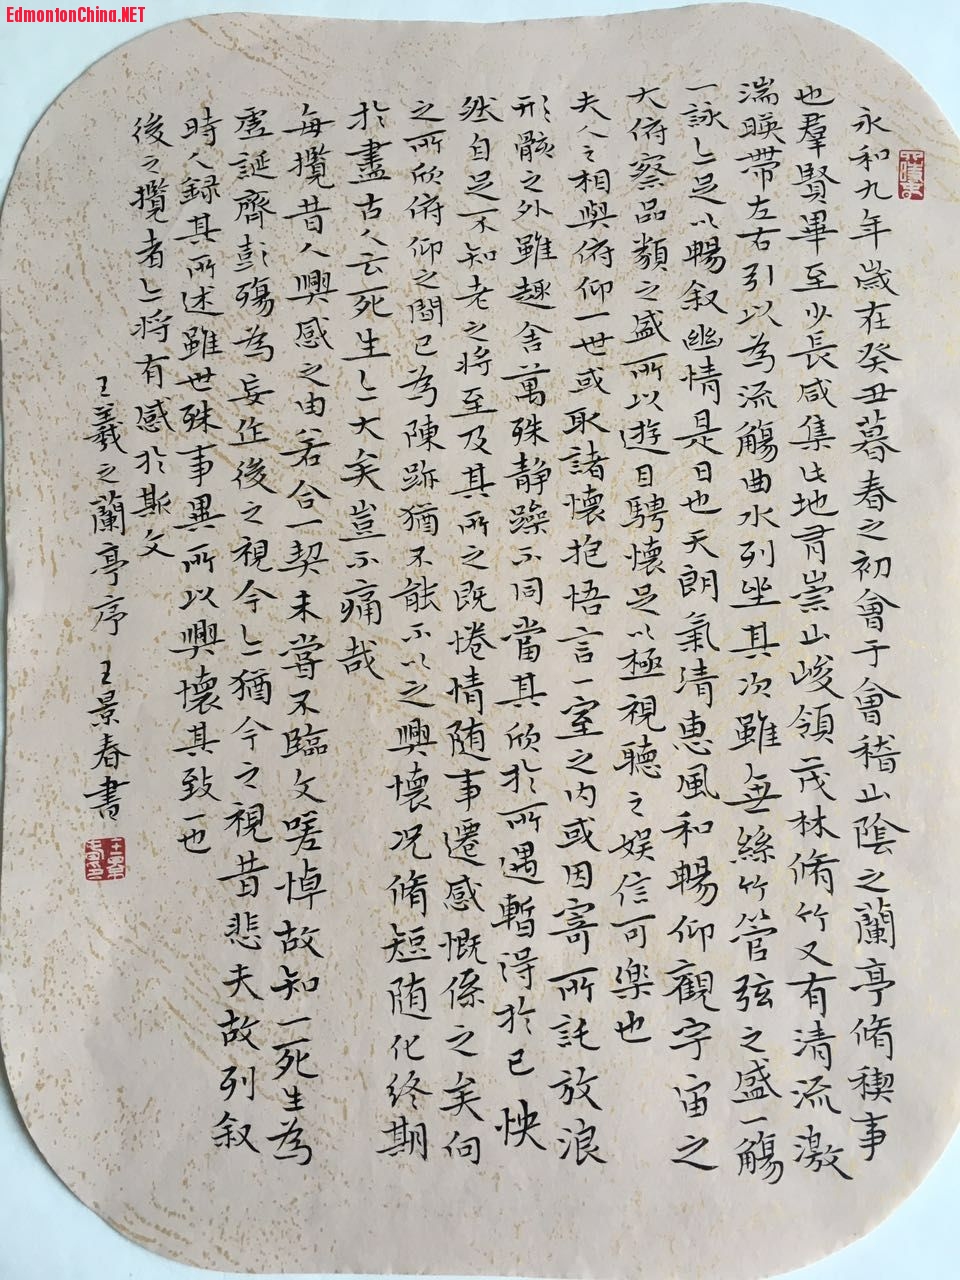 EdmontonChina.NET
永和九年歲在癸丑暮春之初會于會稽山陰之蘭亭脩稧事
也羣賢畢至少長咸集此地有崇山峻領茂林脩竹又有清流激
湍暎帶左右引以為流觴曲水列坐其次雖無絲竹管弦之盛一觴
一詠亦足以暢叙幽情是日也天朗氣清惠風和暢仰觀宇宙之
大俯察品類之盛所以遊目騁懷足以極視聽之娱信可樂也
夫人之相與俯仰一世或取諸懷抱悟言一室之内或因寄所託放浪
形骸之外雖趣舍萬殊静躁不同當其欣於所遇暫得於己怏
然自足不知老之將至及其所之既惓情随事遷感慨係之矣向
之所欣俯仰之間已為陳跡猶不能不以之興懷况脩短随化終期
於盡古人云死生亦大矣豈不痛哉
每攬昔人興感之由若合一契未嘗不臨文嗟悼故知一死生為
虚誕齊彭殤為妄作後之視今亦猶今之視昔悲夫故列叙
時人録其所述雖世殊事異所以興懷其致一也
後之攬者亦將有感於斯文
王羲之蘭亭序 王景春書